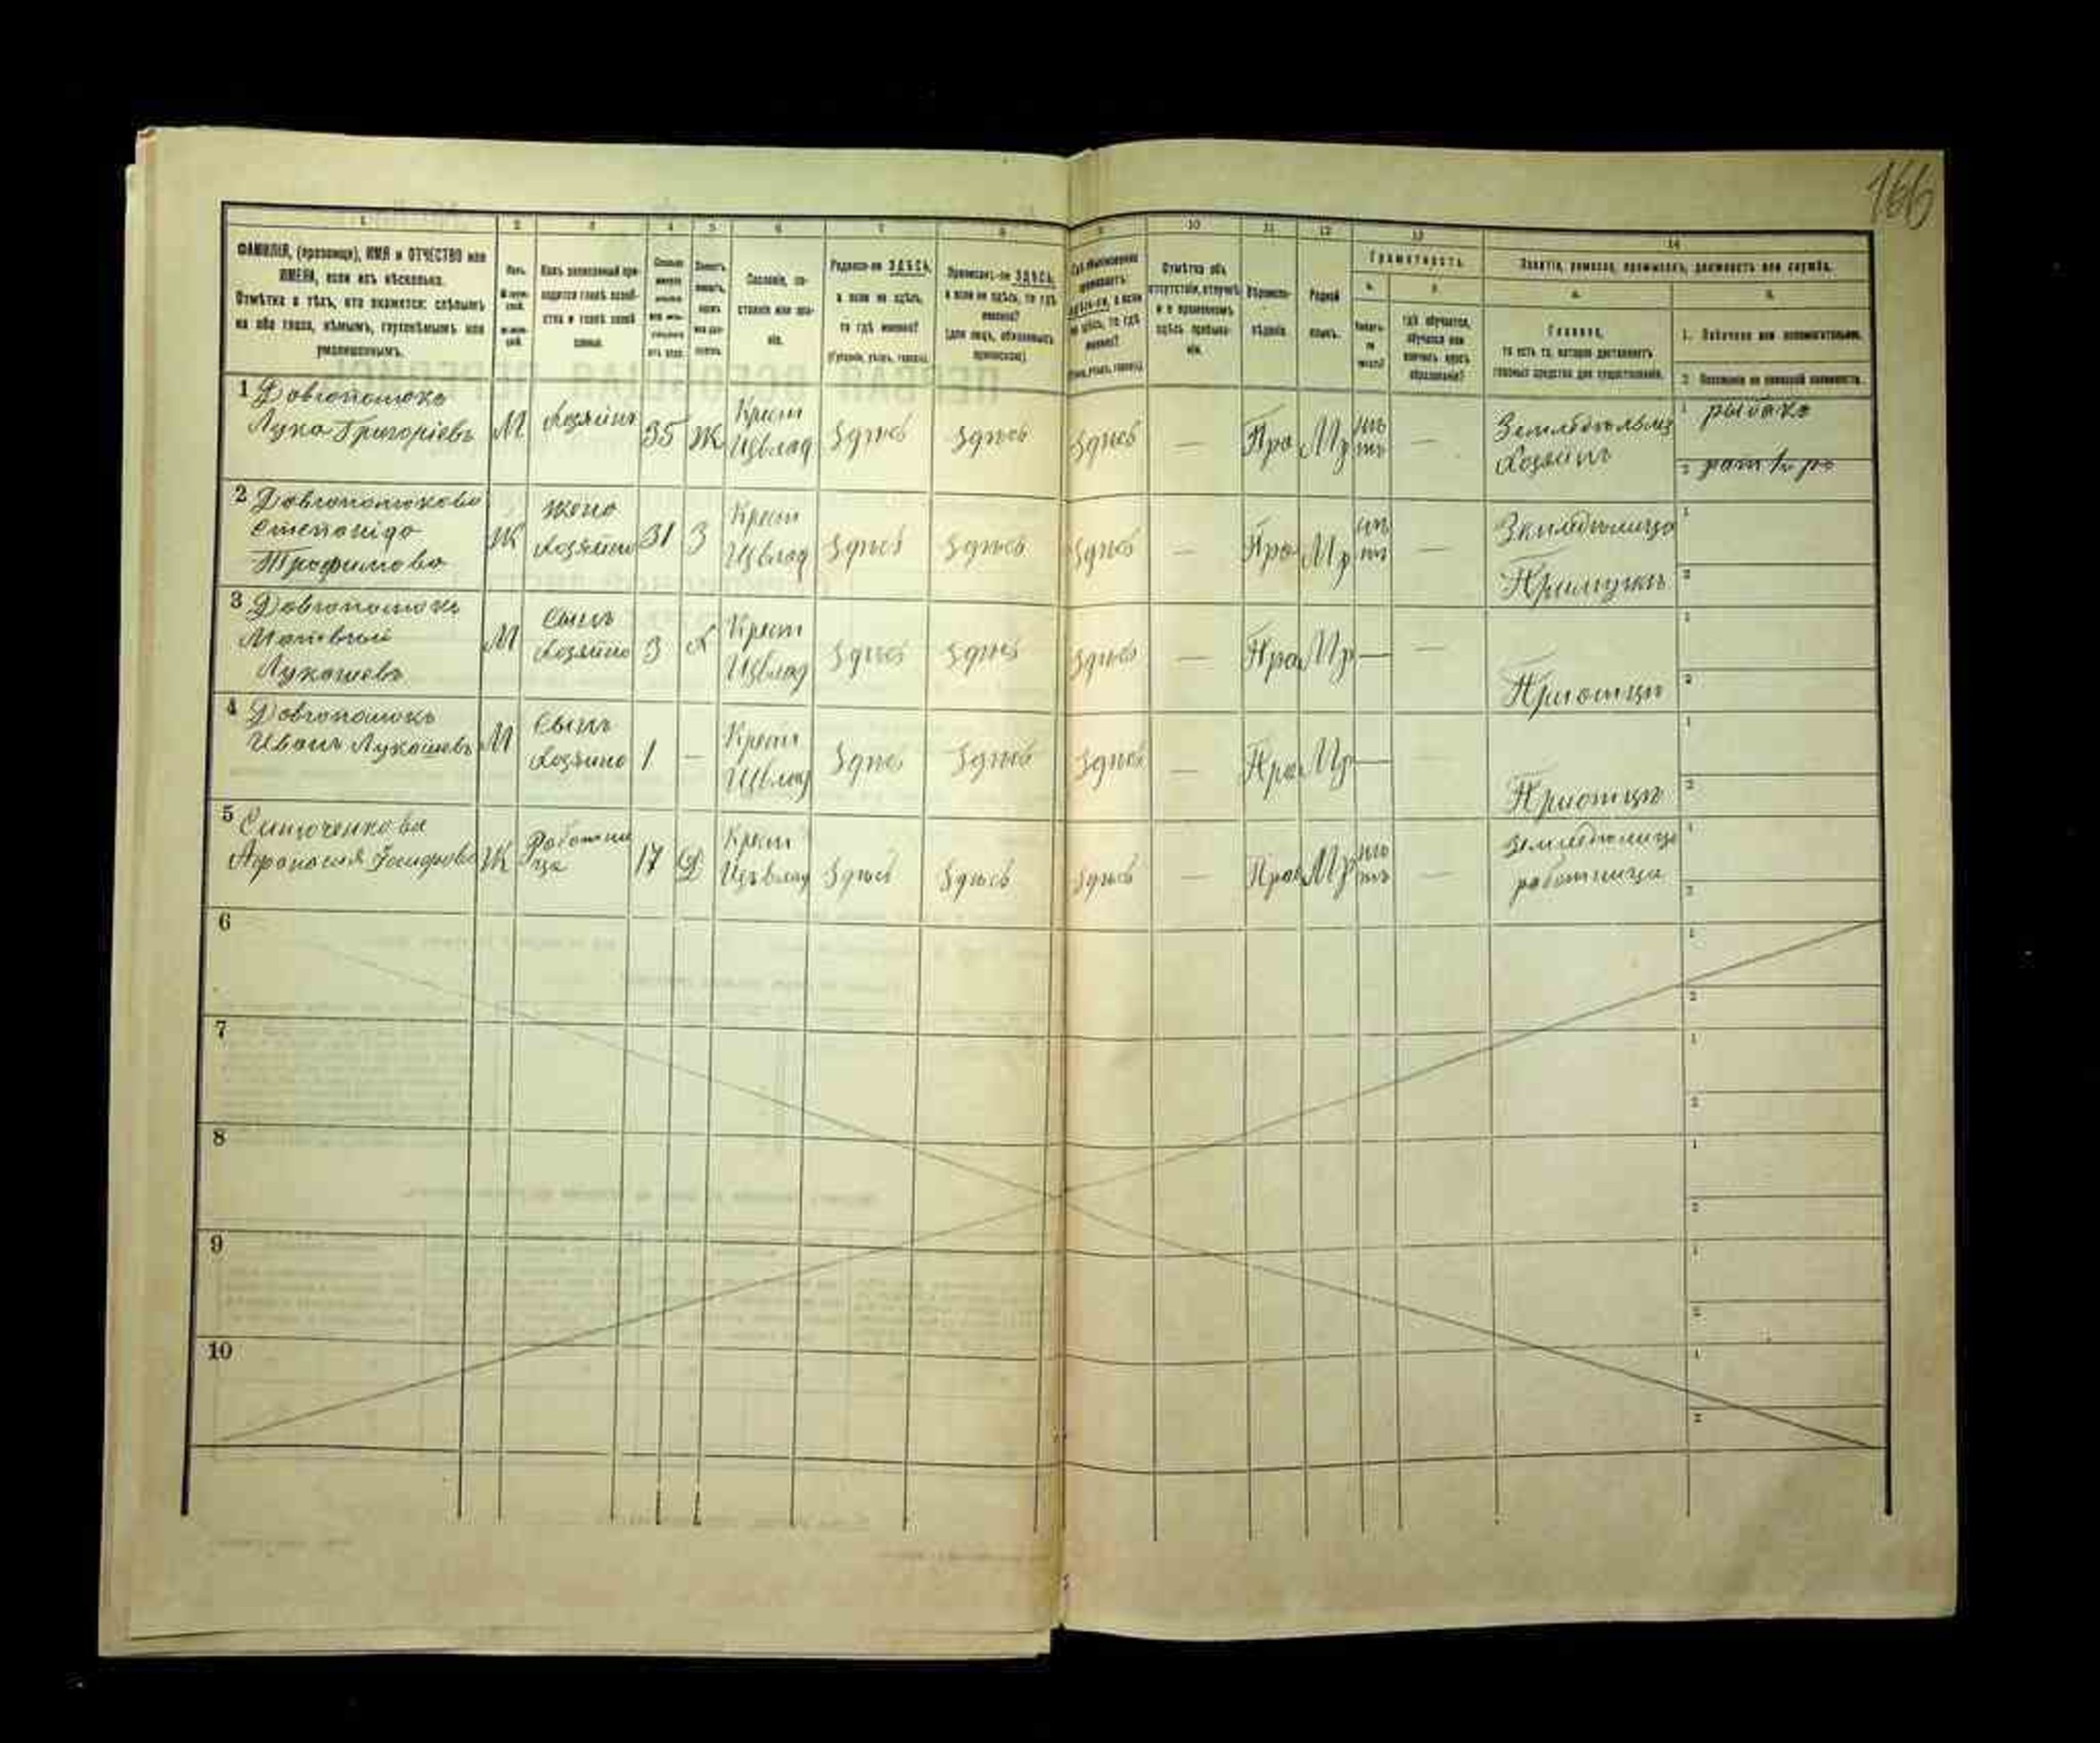 166
1 2 3 4 5 6 7 8 9 10 11 12 13 14
ФАМИЛІЯ, (прозвище), ИМЯ и ОТЧЕСТВО или
ИМЕНА, если ихъ нѣсколько.
Отмѣтка о тѣхъ, кто окажется: слѣпымъ
на оба глаза, нѣмымъ, глухонѣмымъ или
умалишеннымъ.
Полъ.
Какъ записанный при-
ходится главѣ хозяй-
ства и главѣ своей
семьи.
Сословіе, со-
стояніе или зва-
ніе.
Родился-ли ЗДѢСЬ,
а если не здѣсь,
то гдѣ именно?
(Губернія, уѣздъ, городъ).
Приписанъ-ли ЗДѢСЬ,
а если не здѣсь, то гдѣ
именно?
(для лицъ, обязанныхъ
припискою).
Гдѣ обыкновенно
проживаетъ:
здѣсь-ли, а если
не здѣсь, то гдѣ
именно?
Отмѣтка объ
отсутствіи, отлучкѣ
и о временномъ
здѣсь пребыва-
ніи.
Вѣроиспо-
вѣданіе.
Родной
языкъ.
Грамотность.
а.
б.
Гдѣ обучается,
обучался или
кончилъ курсъ
образованія?
Занятіе, ремесло, промыселъ, должность или служба.
а.
Главное,
то есть то, которое доставляетъ
главныя средства для существованія.
б.
1. Побочное или вспомогательное.
2. Положеніе по воинской повинности.
1 Довгополюкъ
Лука Григоріевъ
М
Хозяинъ
35
Ж
Крест
Изъ влад
Здѣсь
Здѣсь
Здѣсь
—
Пра
Мр
нѣ
тъ
—
Хозяинъ
1 рыбакъ
2
2
Степанида
Трофимова
Ж
жена
хозяина
31
З
Крест
Изъ влад
Здѣсь
Здѣсь
Здѣсь
—
Пра
Мр
нѣ
тъ
—
При мужѣ
1
2
3 Довгополюкъ
Матвѣй
Лукашевъ
М
Сынъ
хозяина
3
Х
Крест
Изъ влад
Здѣсь
Здѣсь
Здѣсь
—
Пра
Мр
—
—
При отцѣ
1
2
4 Довгополюкъ
Иванъ Лукашевъ
М
Сынъ
хозяина
1
—
Крест
Изъ влад
Здѣсь
Здѣсь
Здѣсь
—
Пра
Мр
—
При отцѣ
1
2
5
Ж
Работни
ца
17
Д
Крест
Изъ влад
Здѣсь
Здѣсь
Здѣсь
—
Пра
Мр
нѣ
тъ
—
работница
1
2
6
1
2
7
1
2
8
1
2
9
1
2
10
1
2